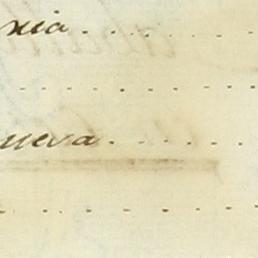 nia . . . . . . .
. . . . . . . . . .
ueva . . . . . .
. . . . . . . . . .